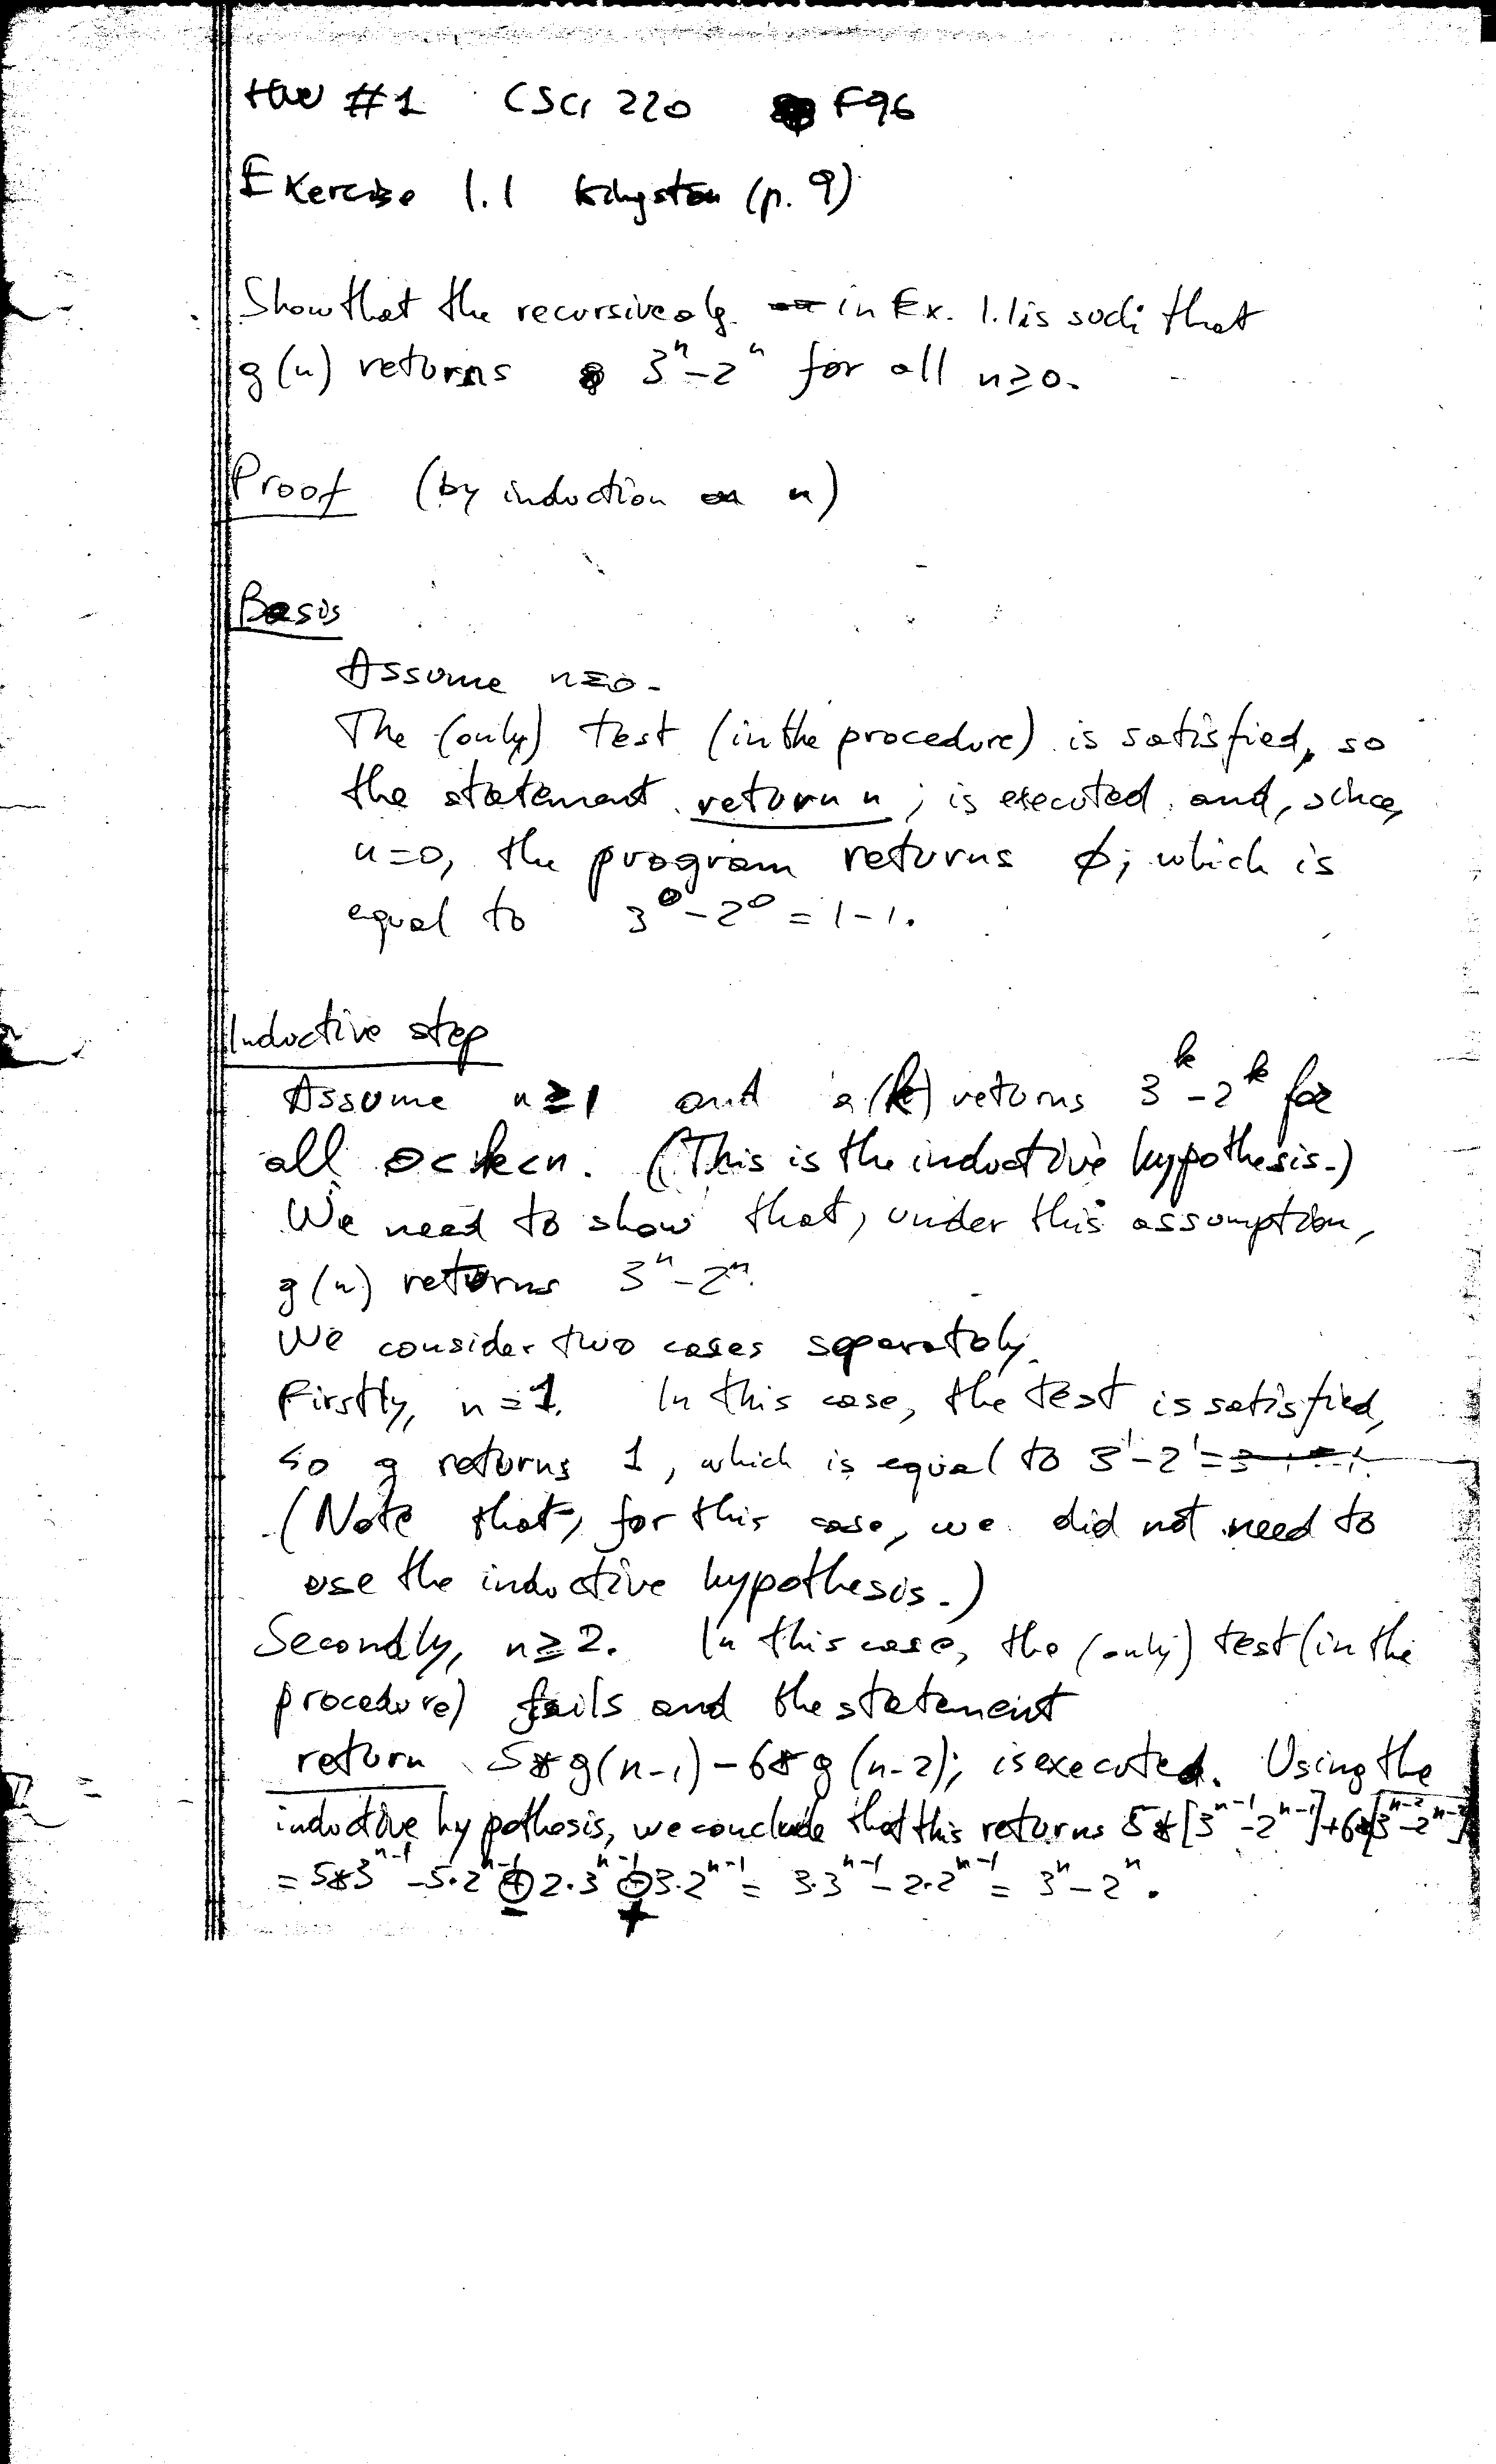 HW #1 CSCI 220 F96
Exercise 1.1 Kingston (p. 9)
Show that the recursive alg. in Ex. 1.1 is such that
g(n) returns 3^n - 2^n for all n≥0.
Proof (by induction on n)
Basis
Assume n=0.
The (only) test (in the procedure) is satisfied, so
the statement return n; is executed, and, since,
n=0, the program returns 0; which is
equal to 3^0 - 2^0 = 1-1.
Inductive step
Assume n≥1 and g(k) returns 3^k - 2^k for
all 0≤k<n. (This is the inductive hypothesis.)
We need to show that, under this assumption,
g(n) returns 3^n - 2^n.
We consider two cases separately.
Firstly, n=1. In this case, the test is satisfied,
so g returns 1, which is equal to 3^1 - 2^1
(Note that, for this case, we did not need to
use the inductive hypothesis.)
Secondly, n≥2. In this case, the (only) test (in the
procedure) fails and the statement
return 5*g(n-1)-6*g(n-2); is executed. Using the
inductive hypothesis, we conclude that this returns 5*[3^{n-1} - 2^{n-1}]+6*[3^{n-2} - 2^{n-2}]
= 5*3^{n-1} - 5·2^{n-1} - 2·3^{n-1} + 3·2^{n-1} = 3·3^{n-1} - 2·2^{n-1} = 3^n - 2^n.